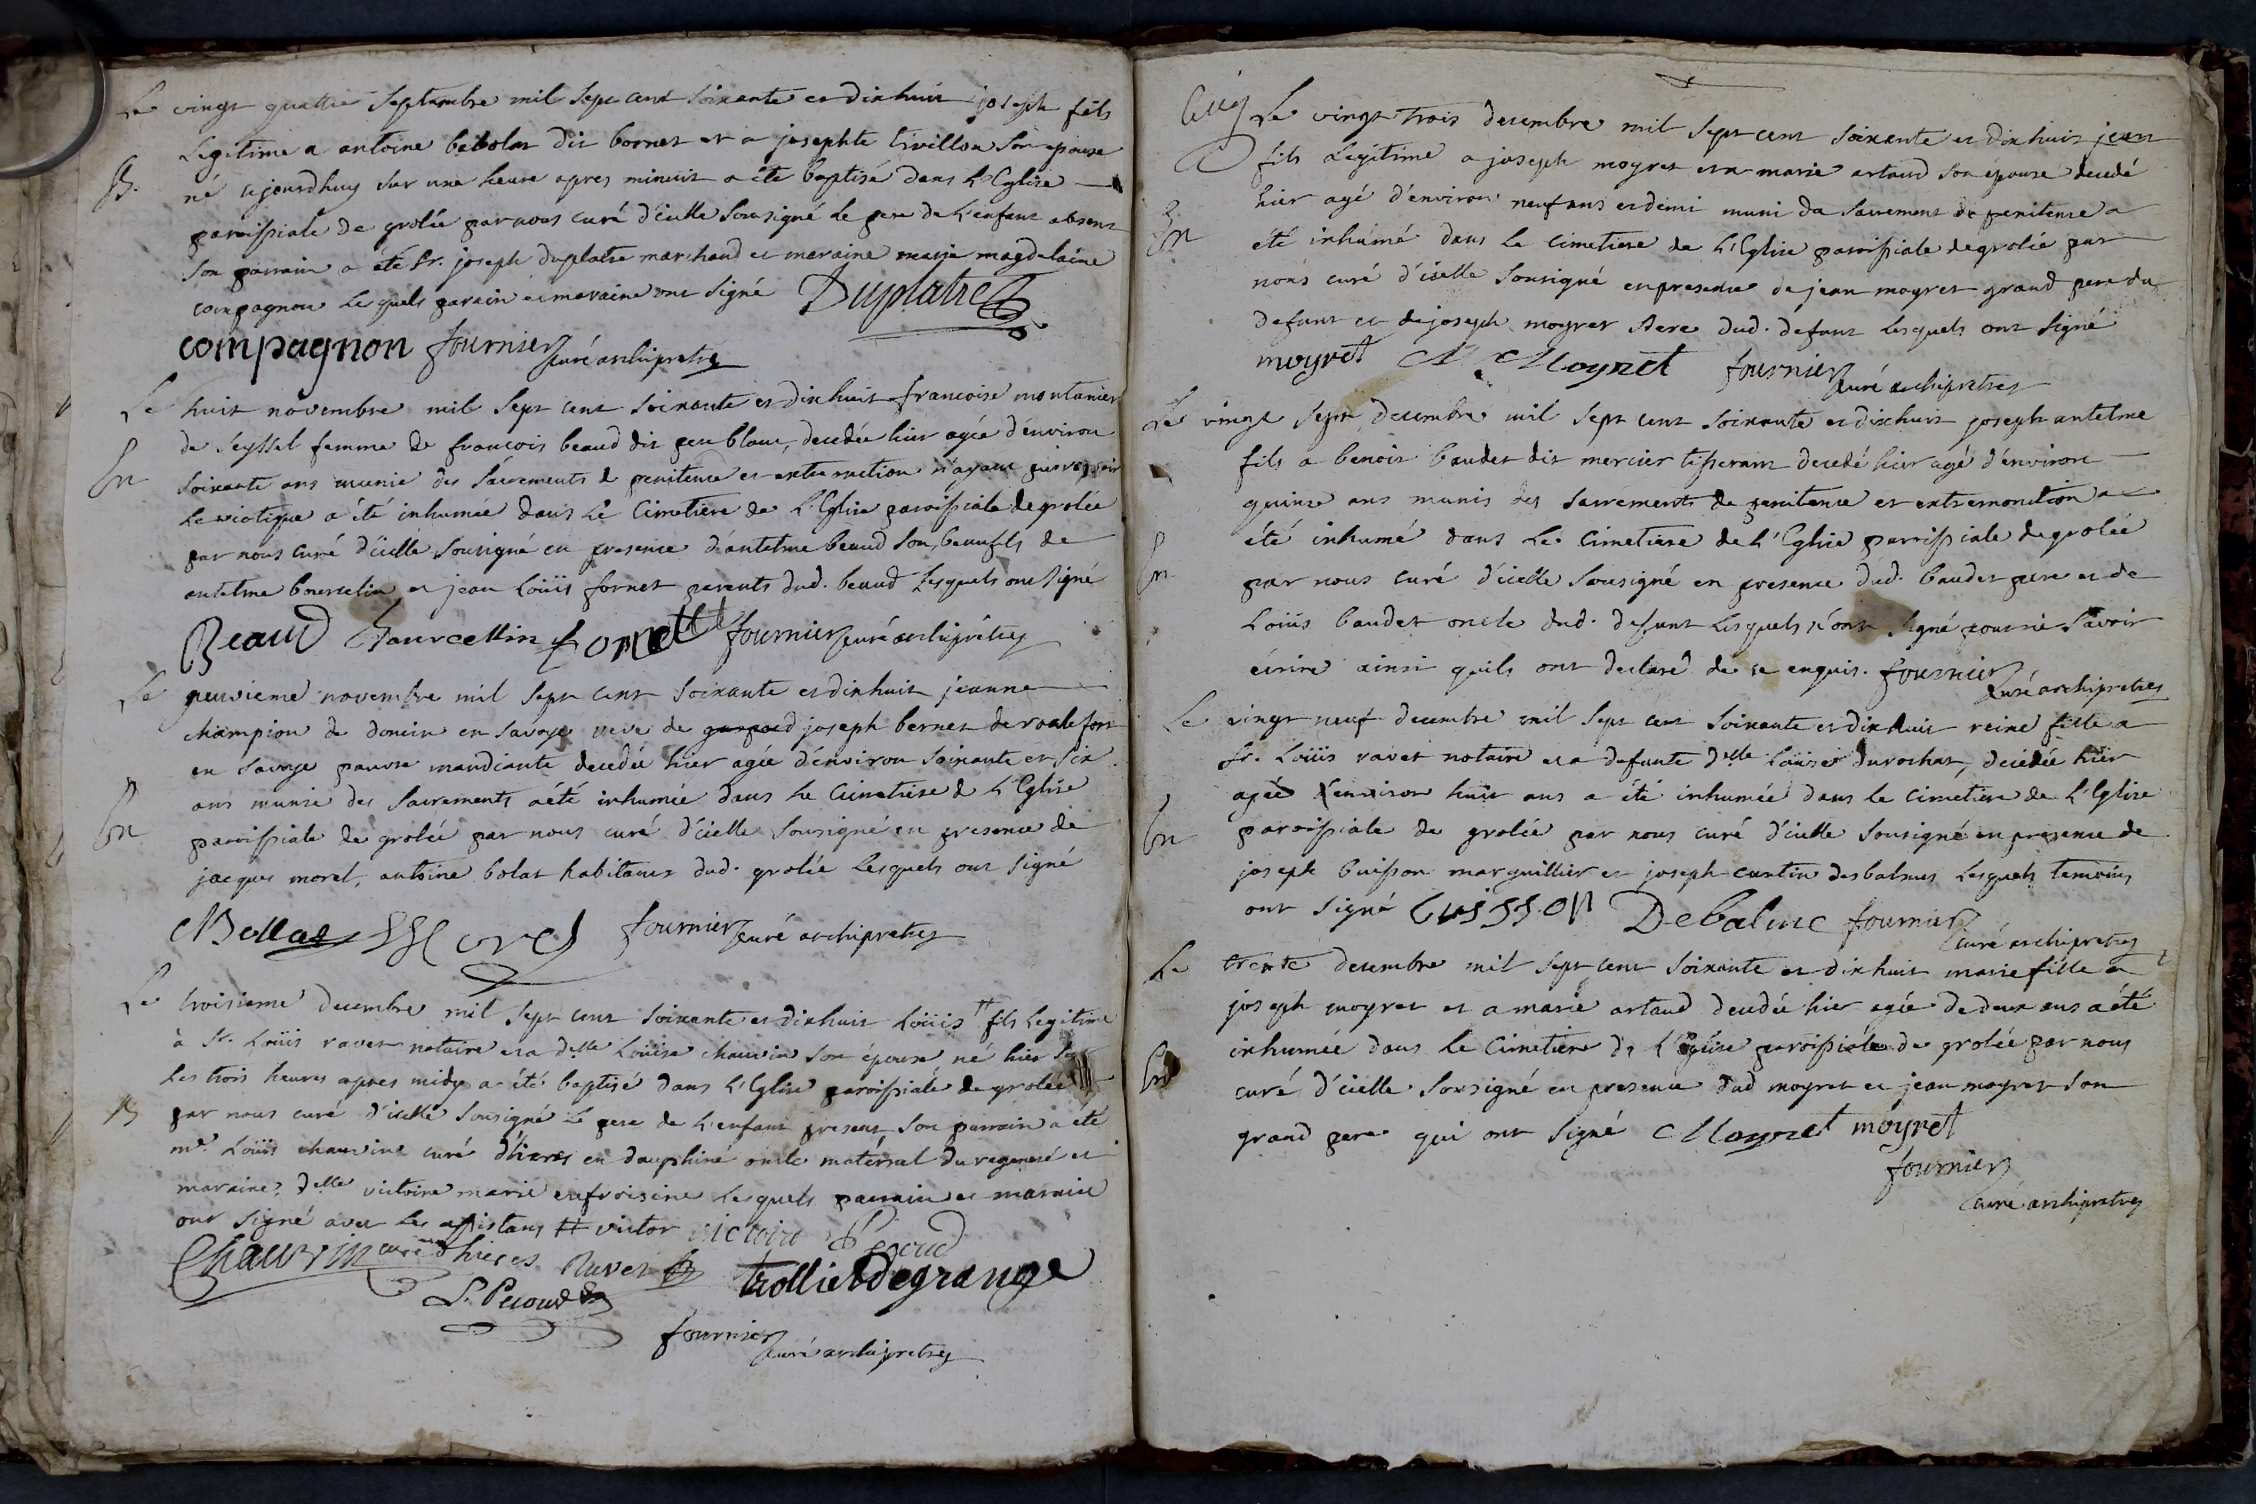 Le vingt quattre Septambre mil Sept cent Soixante et dixhuit joseph fils
Legitime a antoine bebolat dit bornet et a josephte Trivillon Son epouse
B. né ajourdhuy Sur une heure apres minuit a été baptisé dans L'Eglise
paroissiale de grolée par nous curé d'icelle Sousigné Le pere de L'enfant absent
Son parrain a été Sr. joseph duplatre marchand et maraine marie magdelaine
compagnon Lesquels parain et maraine ont Signé Duplatre
compagnon fournier curé archipretre
Le huit novembre mil Sept cent Soixante et dixhuit francoise montanier
de Seyssel femme de françois beaud dit peu blanc, decedée hier agée d'environ
En Soixante ans munie des Sacrements de penitence et extremonction n'ayant pu recevoir
Le viatique a été inhumée dans Le Cimetiere de L'Eglise paroissiale de grolée
par nous curé d'icelle Sousigné en presence d'antelme beaud Son beaufils de
antelme bourcelin et jean Loüis fornet parents dud. beaud Lesquels ont Signé
Beaud Bourcellin fornett fournier curé archiprêtre
Le neuvieme novembre mil Sept cent Soixante et dixhuit jeanne
champion de domcin en Savoye veve de joseph bernet de rochefort
en Savoye pauvre mandiante decedée hier agée d'environ Soixante et Six
ans munie des Sacrements a été inhumée dans Le Cimetiere de L'Eglise
En paroissiale de grolée par nous curé d'icelle Sousigné en presence de
jacques morel, antoine bolat habitants dud. grolée Lesquels ont Signé
Bollat Morel fournier curé archipretre
Le troisieme decembre mil Sept cent Soixante et dixhuit Loüis # fils Legitime
à Sr. Loüis ravet notaire et a delle Loüise chauvin Son épouse né hier Sur
Les trois heures apres midy a été baptisé dans L'Eglise paroissiale de grolée
B par nous curé d'icelle Sousigné Le pere de L'enfant present Son parrain a été
mre. Loüis chauvin curé d'hieres en dauphiné oncle maternel du regeneré et
maraine delle victoire marie enfroisine Lesquels parrain et maraine
ont Signé avec Les assistans # victor victoire Pecoud
Chauvin curé d'hieres Ravet trollietdegrange
L. Pecoud
fournier curé archipretre
Le vingt trois decembre mil Sept cent Soixante et dixhuit jean
fils Legitime a joseph moyret et a marie artaud Son épouse decedé
hier agé d'environ neuf ans et demi muni du Sacrement de penitence a
En été inhumé dans Le Cimetiere de L'Eglise paroissiale de grolée par
nous curé d'icelle Sousigné en presence de jean moyret grand pere du
defunt et de joseph moyret Pere dud. defunt Lesquels ont Signé
moyret Moyret fournier curé archipretre
Le vingt Sept decembre mil Sept cent Soixante et dixhuit joseph antelme
fils a benoit baudet dit mercier tisserant decedé hier agé d'environ
quinze ans munis des Sacrements de penitence et extremonction a
été inhumé dans Le Cimetiere de L'Eglise paroissiale de grolée
En par nous curé d'icelle Sousigné en presence dud. baudet pere et de
Loüis baudet oncle dud. defunt Lesquels n'ont Signé pour ne Savoir
écrire ainsi quils ont declaré de ce enquis. fournier curé archipretre
Le vingt neuf decembre mil Sept cent Soixante et dixhuit reine fille a
Sr. Loüis ravet notaire et a defunte delle Loüise durochat, decédée hier
agée d'environ huit ans a été inhumée dans Le Cimetiere de L'Eglise
En paroissiale de grolée par nous curé d'icelle Sousigné en presence de
joseph buisson marguillier et joseph curtin desbalmes Lesquels temoins
ont Signé buisson Debalme fournier curé archipretre
Le trente decembre mil Sept cent Soixante et dixhuit marie fille a
joseph moyret et a marie artaud decedée hier agée de deux ans a été
En inhumée dans Le Cimetiere de L'Eglise paroissiale de grolée par nous
curé d'icelle Sousigné en presence dud moyret et jean moyret Son
grand pere qui ont Signé Moyret moyret
fournier
curé archipretre